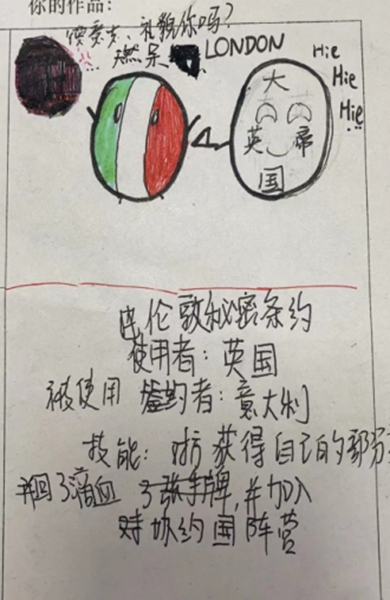 你的作品:
礼貌你吗?
LONDON
Hie
Hie
Hie
大
英 帝
国
伦敦秘密条约
使用者: 英国
被使用 签约者: 意大利
技能: 对方获得自己的部分
并回3滴血 3张手牌, 并加入
协约国阵营